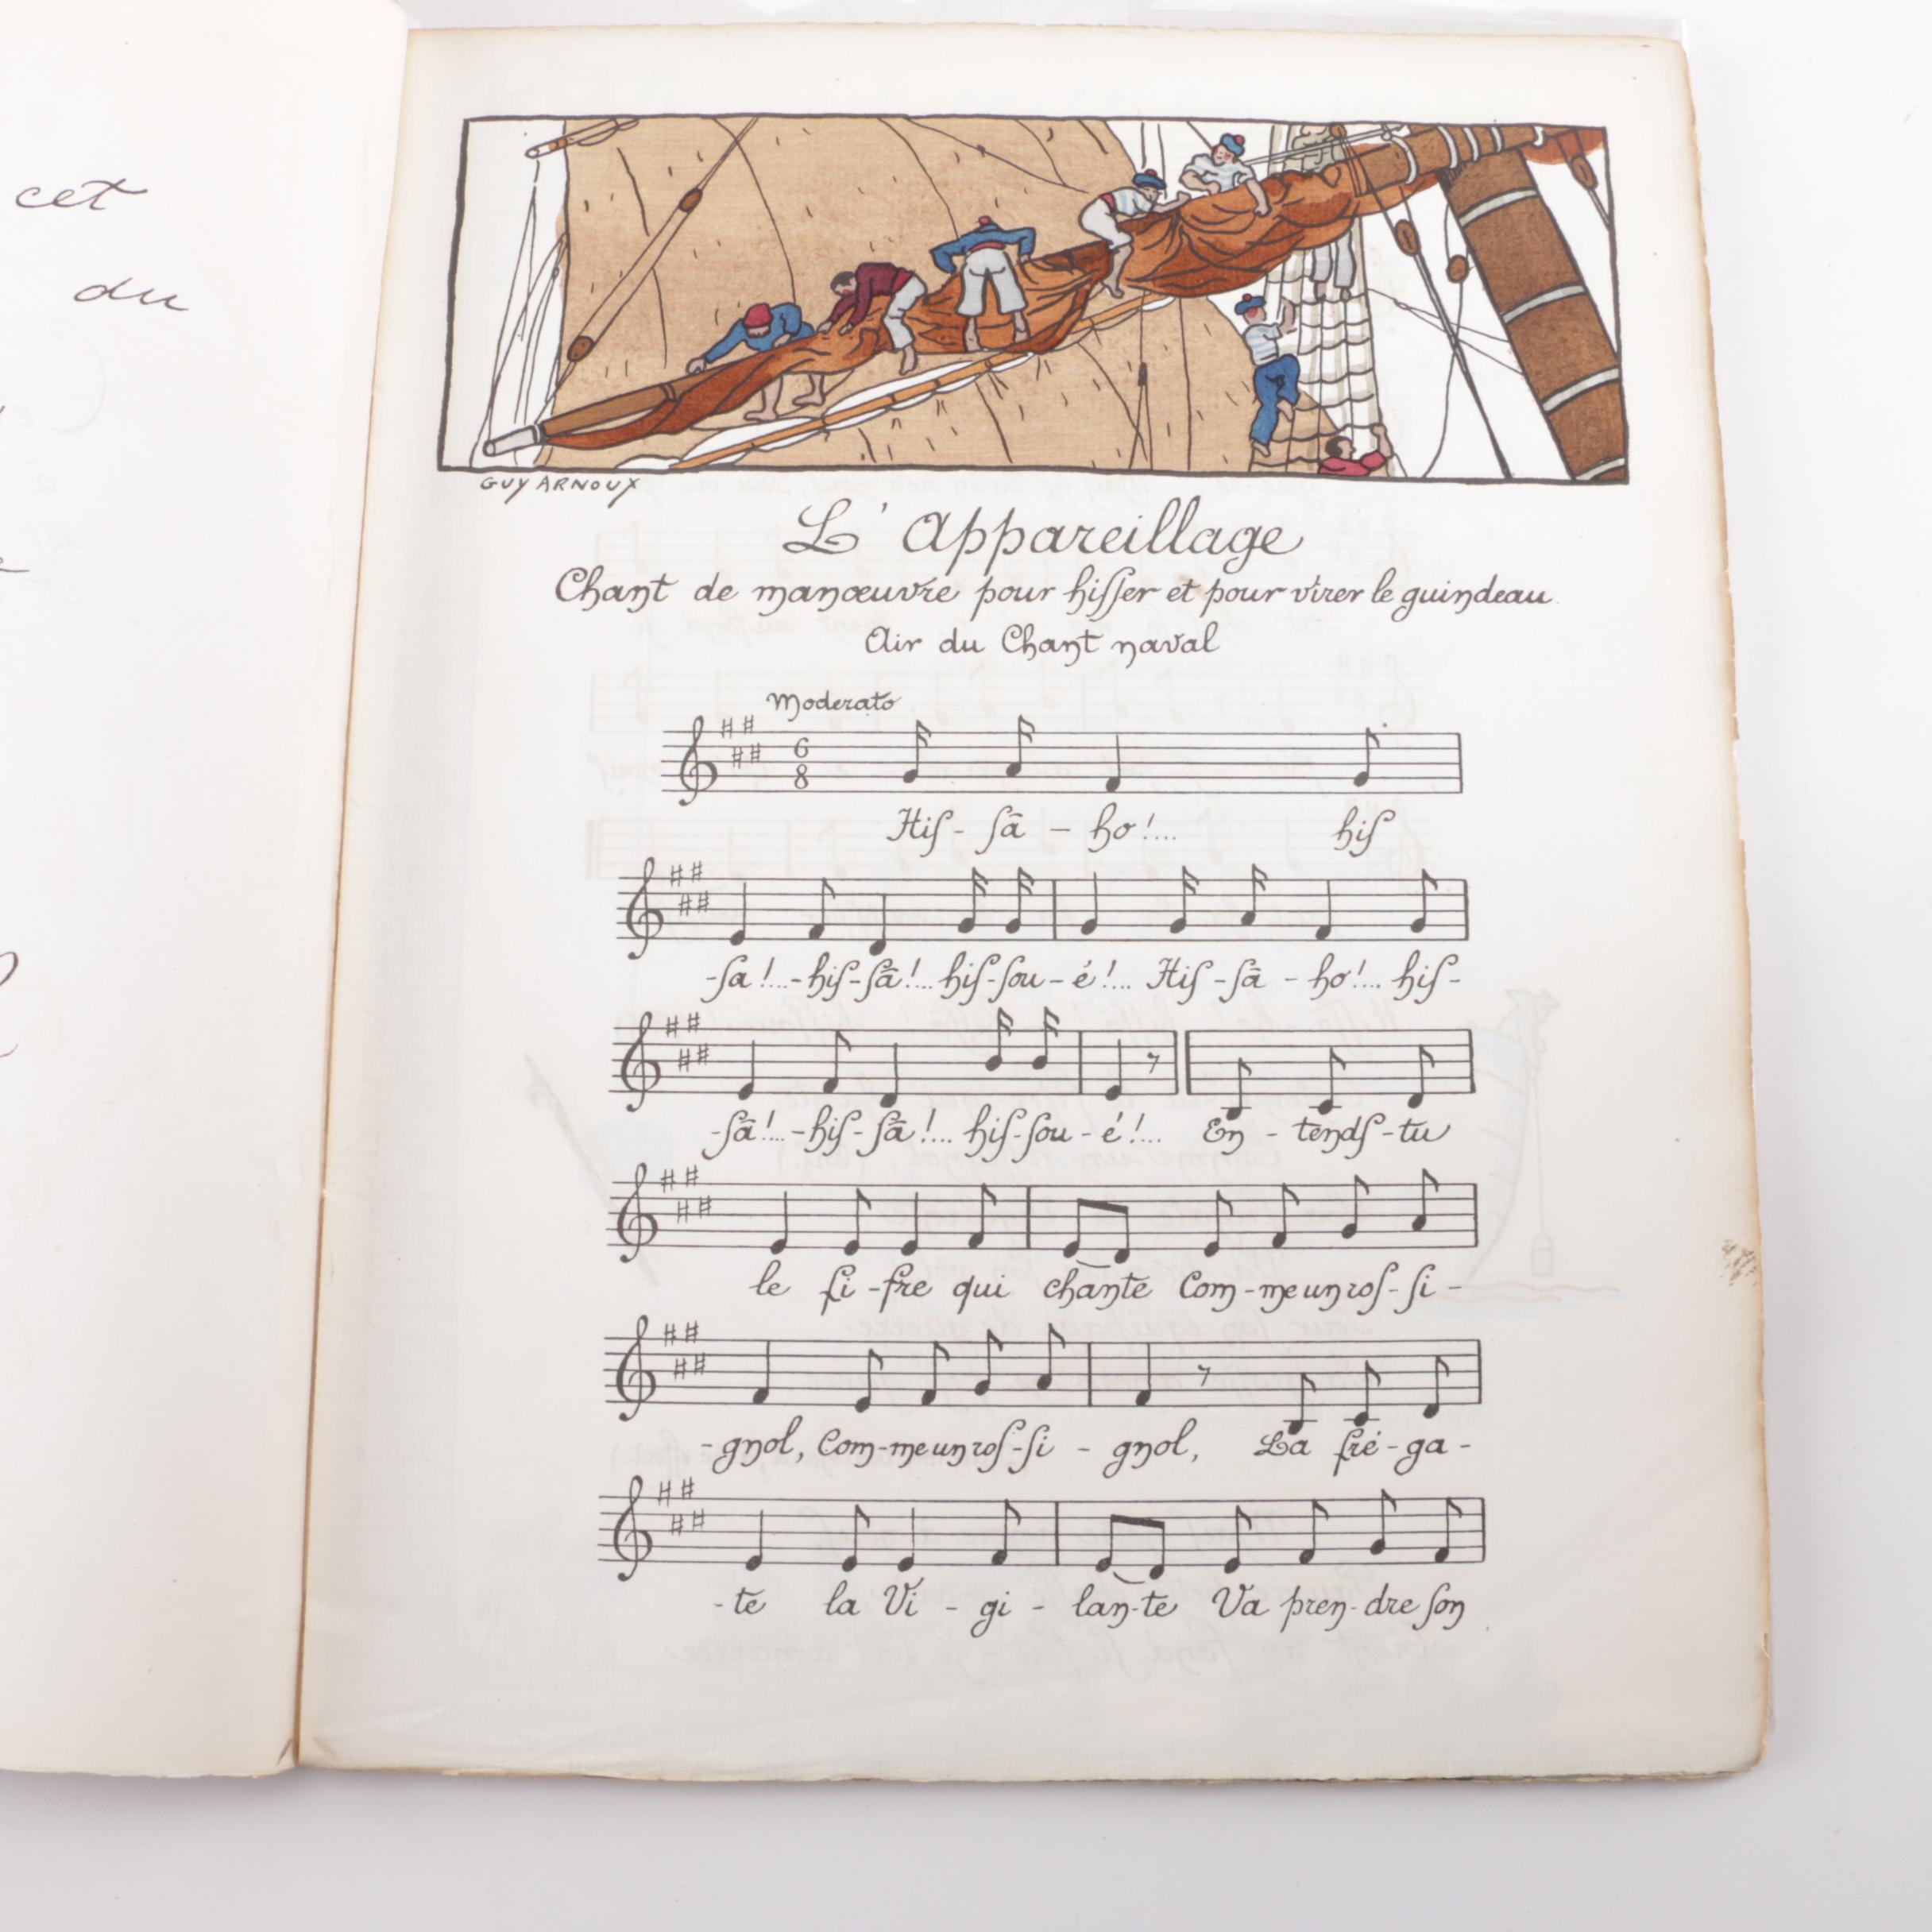 cet
du
GUY ARNOUX
L'Appareillage
Chant de manœuvre pour hiſſer et pour virer le guindeau.
Air du Chant naval
Moderato
6
8
Hiſ-ſã-ho!... hiſ
-ſa!...-hiſ-ſã!... hiſ-ſou-é!... Hiſ-ſã-ho!... hiſ-
-ſã!...-hiſ-ſã!... hiſ-ſou-é!... En-tendſ-tu
le fi-fre qui chante Com-me un roſ-ſi-
-gnol, Com-me un roſ-ſi-gnol, La fré-ga-
-te la Vi-gi-lan-te Va pren-dre ſon